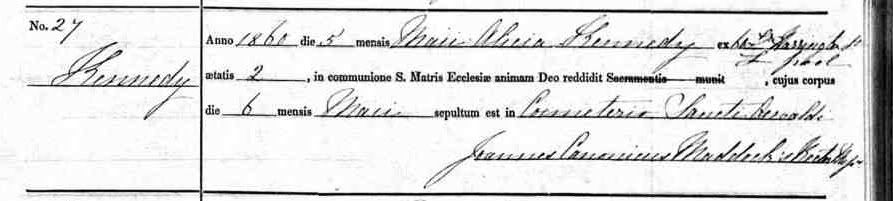 No. 27
Kennedy
Anno 1860 die 5 mensis Maii Alicia Kennedy ex
pool
ætatis 2, in communione S. Matris Ecclesiæ animam Deo reddidit Sacramentis munit, cujus corpus
die 6 mensis Maii sepultum est in Cœmeterio Sancti Oswaldi
Joannes Canonicus Maddocks